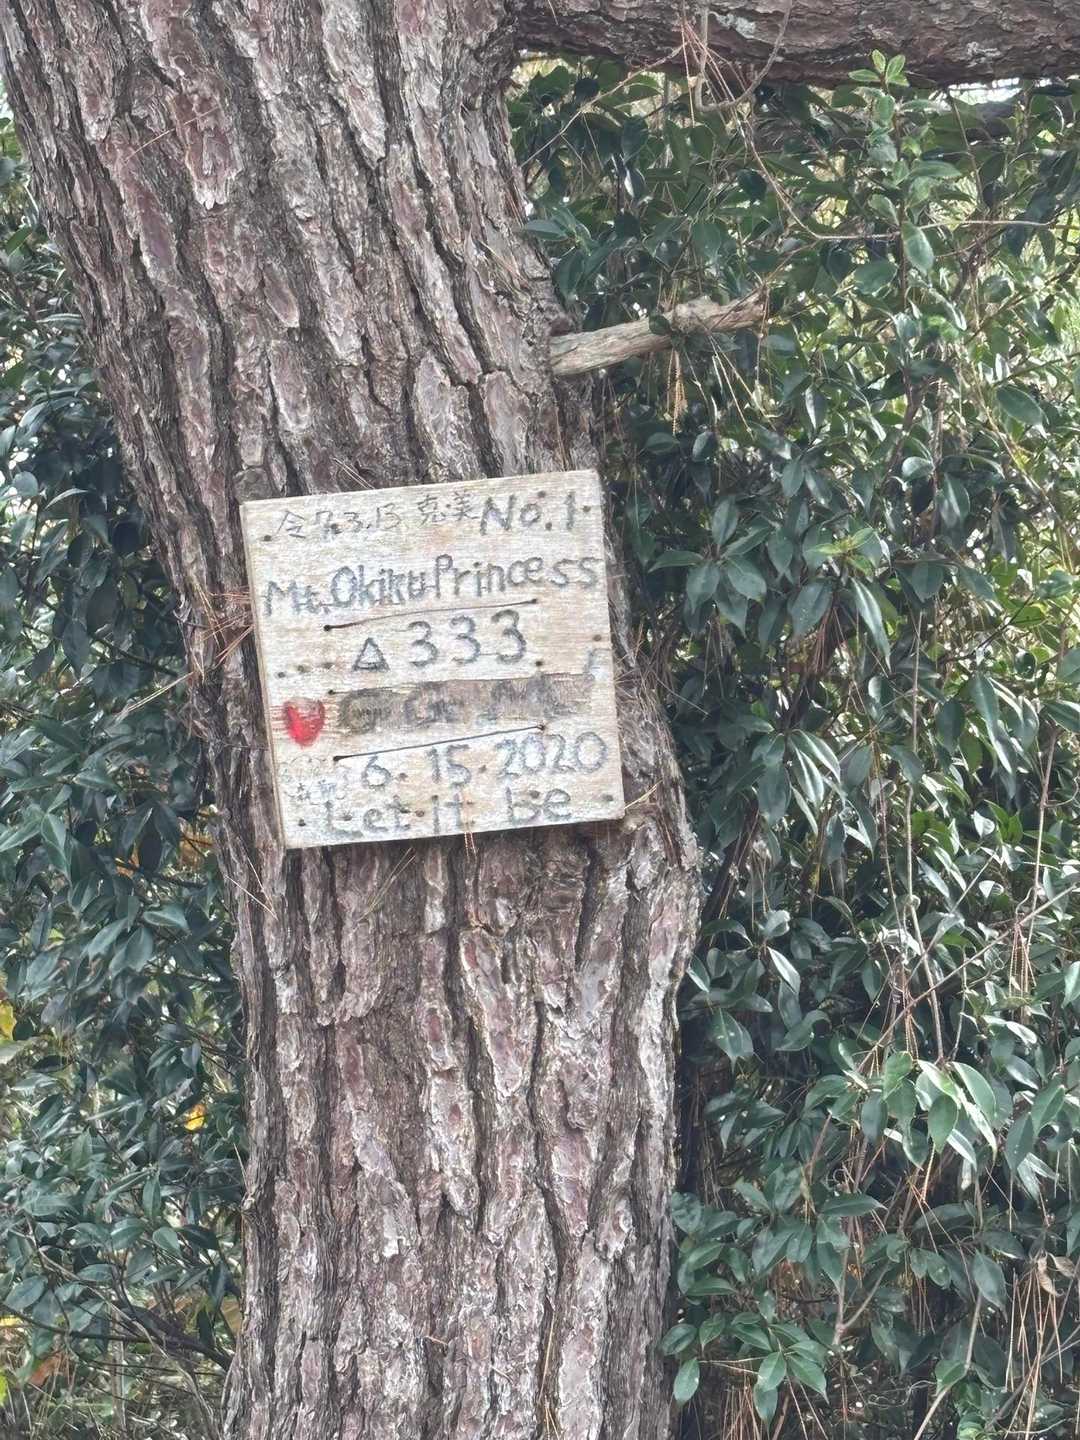 令7.3.13 克美 No.1
Mt.Okiku Princess
△333
6.15.2020
Let it be